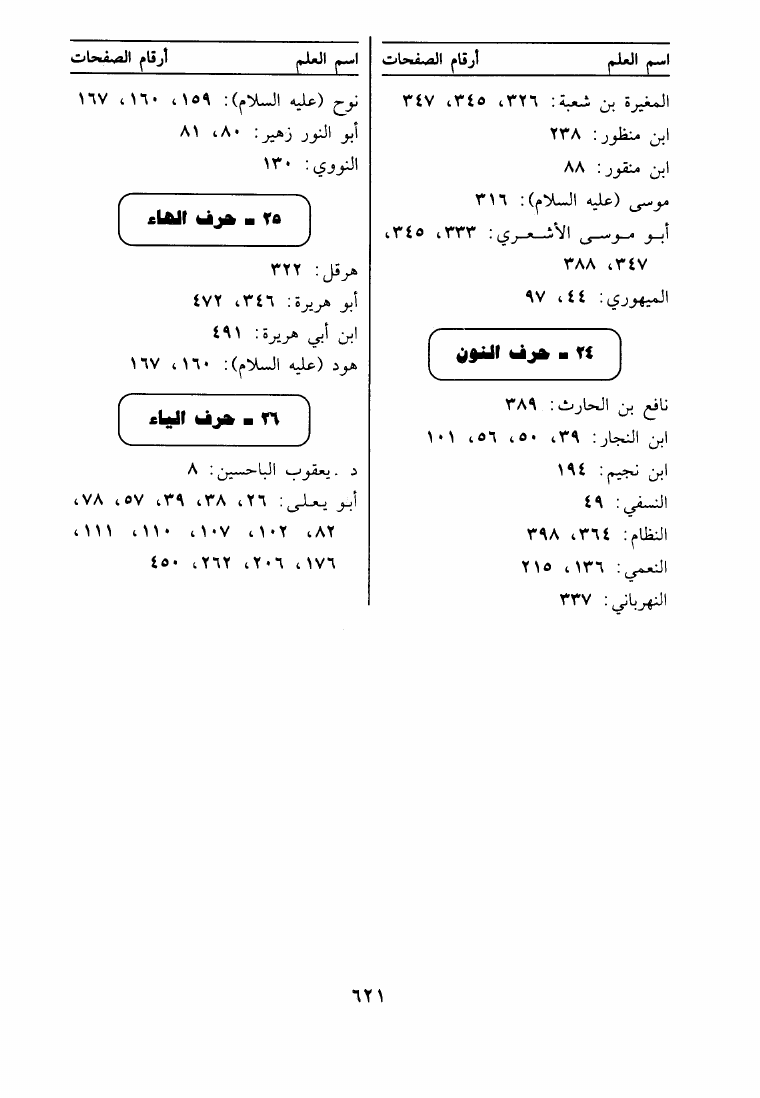 اسم العلم أرقام الصفحات
المغيرة بن شعبة: ٣٢٦، ٣٤٥، ٣٤٧
ابن منظور: ٢٣٨
ابن منقور: ٨٨
موسى (عليه السلام): ٣١٦
أبو موسى الأشعري: ٣٣٣، ٣٤٥،
٣٤٧، ٣٨٨
الميهوري: ٤٤، ٩٧
٢٤ - حرف النون
نافع بن الحارث: ٣٨٩
ابن النجار: ٣٩، ٥٠، ٥٦، ١٠١
ابن نجيم: ١٩٤
النسفي: ٤٩
النظام: ٣٦٤، ٣٩٨
النعمي: ١٣٦، ٢١٥
النهرباني: ٣٣٧
اسم العلم أرقام الصفحات
نوح (عليه السلام): ١٥٩، ١٦٠، ١٦٧
أبو النور زهير: ٨٠، ٨١
النووي: ١٣٠
٢٥ - حرف الهاء
هرقل: ٣٢٢
أبو هريرة: ٣٤٦، ٤٧٢
ابن أبي هريرة: ٤٩١
هود (عليه السلام): ١٦٠، ١٦٧
٢٦ - حرف الياء
د .يعقوب الباحسين: ٨
أبو يعلى: ٢٦، ٣٨، ٣٩، ٥٧، ٧٨،
٨٢، ١٠٢، ١٠٧، ١١٠، ١١١،
١٧٦، ٢٠٦، ٢٦٢، ٤٥٠
٦٢١